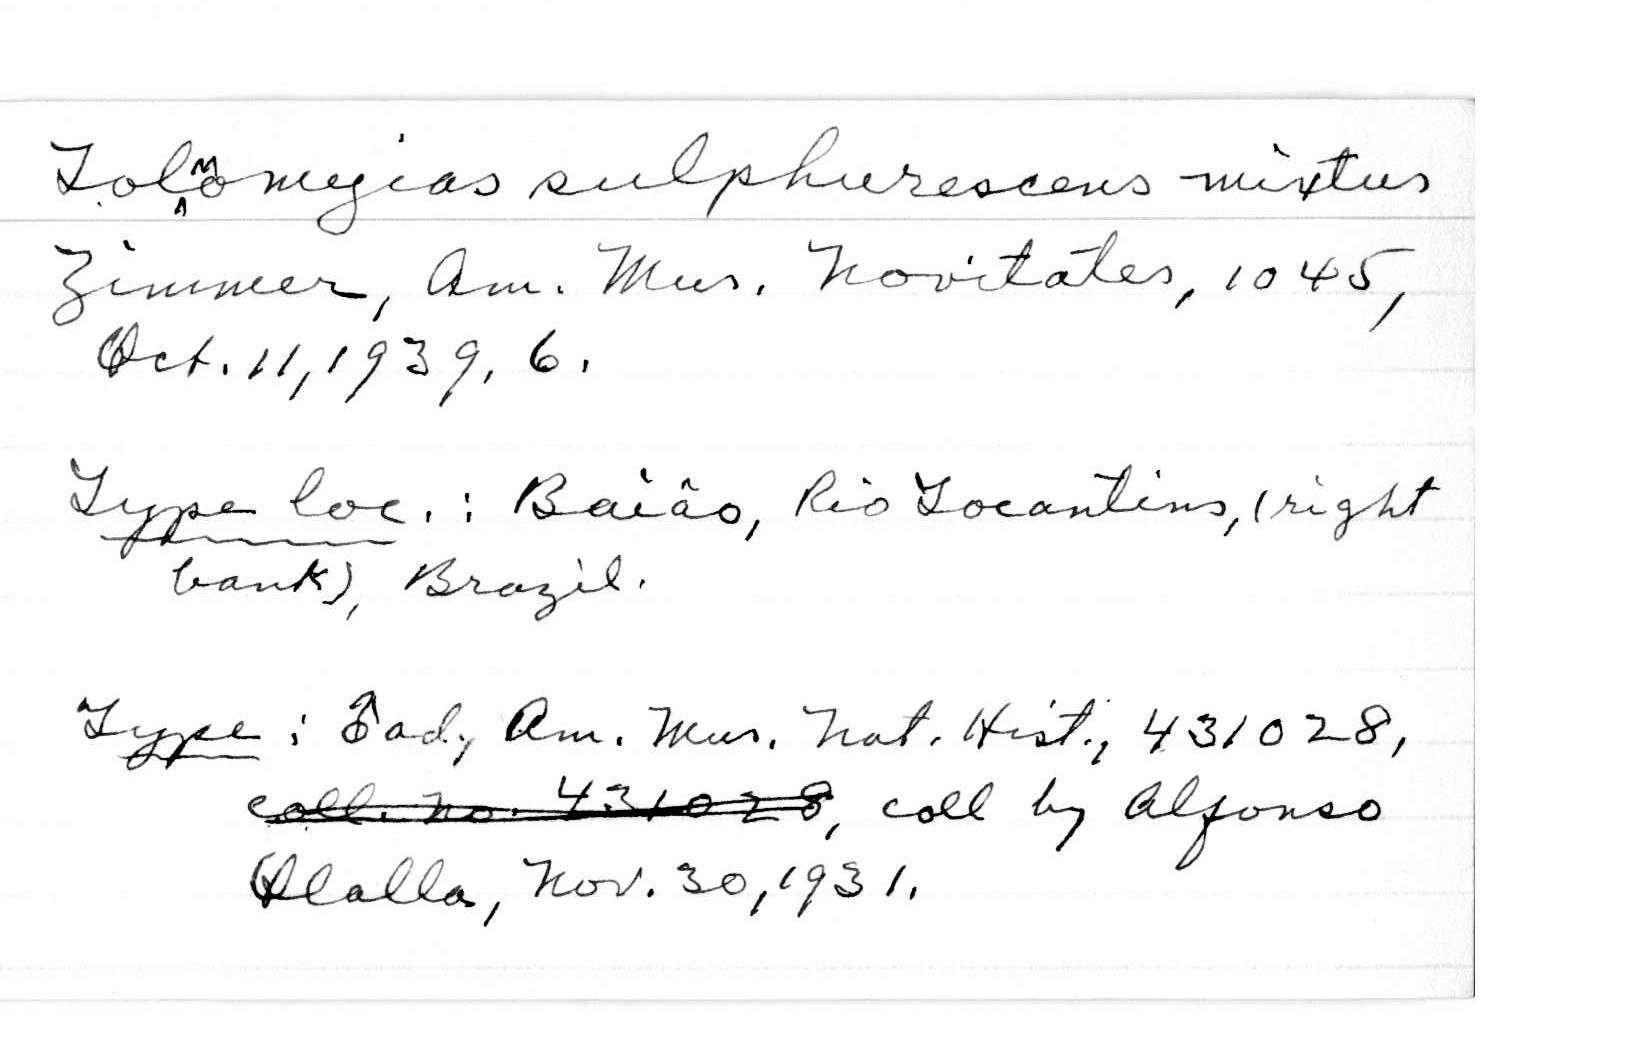 Tolmomyias sulphurescens mixtus
Zimmer, Am. Mus. Novitates, 1045,
Oct. 11, 1939, 6.
Type loc. : Baião, Rio Tocantins, (right
bank), Brazil.
Type : ♂ ad., Am. Mus. Nat. Hist., 431028,
coll. no. 431028, coll by Alfonso
Olalla, Nov. 30, 1931.